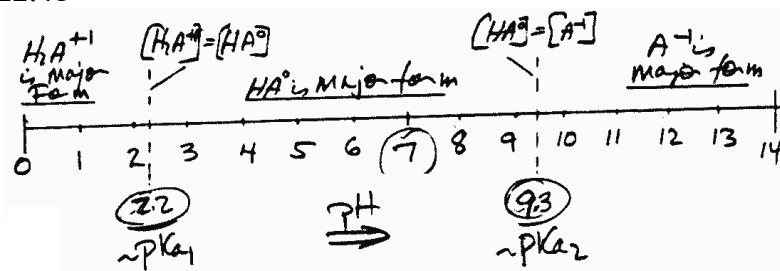 H₂A⁺¹
is Major
Form
[H₂A⁺¹]=[HA⁰]
HA⁰ is Major form
[HA⁰]=[A⁻¹]
A⁻¹ is
Major form
0 1 2 3 4 5 6 (7) 8 9 10 11 12 13 14
2.2
~pKa₁
pH
9.3
~pKa₂